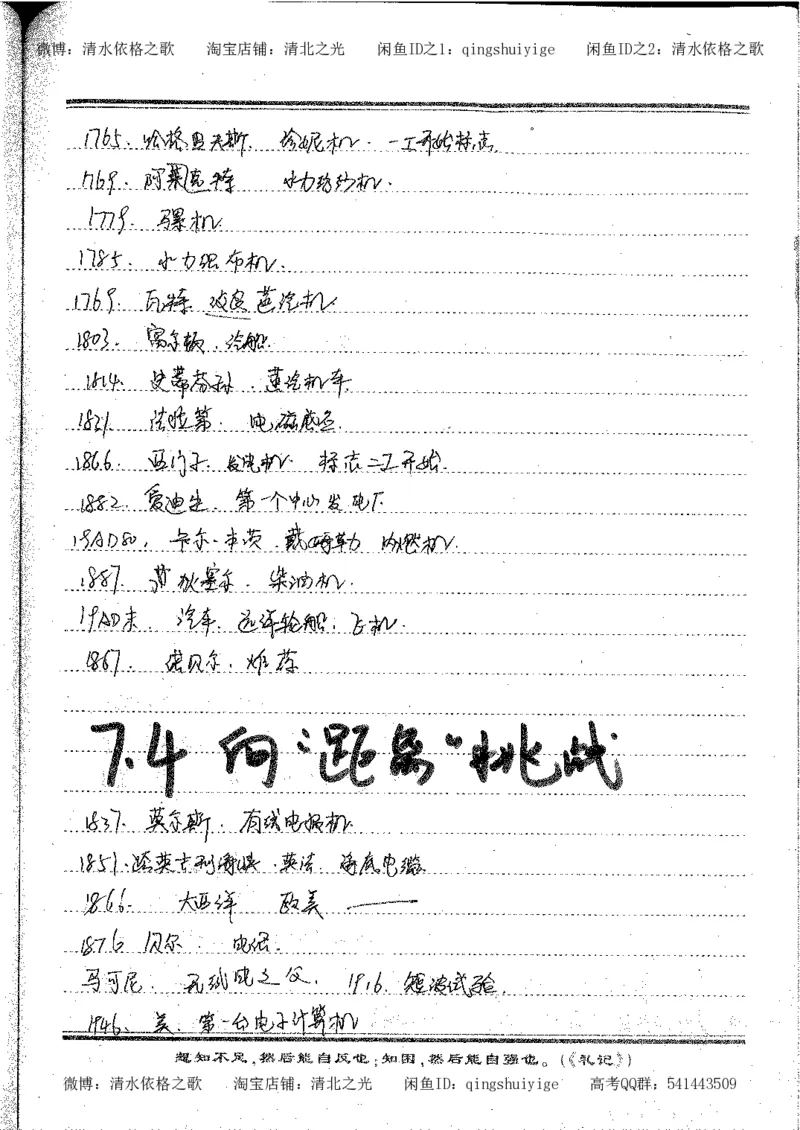 微博：清水依格之歌 淘宝店铺：清北之光 闲鱼ID之1：qingshuiyige 闲鱼ID之2：清水依格之歌
1765. 哈格里夫斯. 珍妮机. 一工开始标志.
1769. 阿莱克特 水力纺纱机.
1779. 骡机.
1785. 水力织布机.
1769. 瓦特. 改良蒸汽机
1803. 富尔顿. 汽船.
1814. 史蒂芬孙. 蒸汽机车.
1821. 法拉第. 电磁感应.
1866. 西门子. 发电机. 标志二工开始.
1882. 爱迪生. 第一个中心发电厂
19AD80. 卡尔·本茨. 戴姆勒 内燃机.
1887. 狄塞尔. 柴油机.
19AD末. 汽车. 远洋轮船. 飞机.
1867. 诺贝尔. 炸药
7.4 向“距离”挑战
1837. 莫尔斯. 有线电报机.
1851. 英吉利海峡. 英法. 海底电缆.
1866. 大西洋 欧美 ——
1876 贝尔. 电话.
马可尼. 无线电之父. 1916. 短波试验.
1946. 美. 第一台电子计算机
知不足,然后能自反也;知困,然后能自强也。(《礼记》)
微博：清水依格之歌 淘宝店铺：清北之光 闲鱼ID：qingshuiyige 高考QQ群：541443509